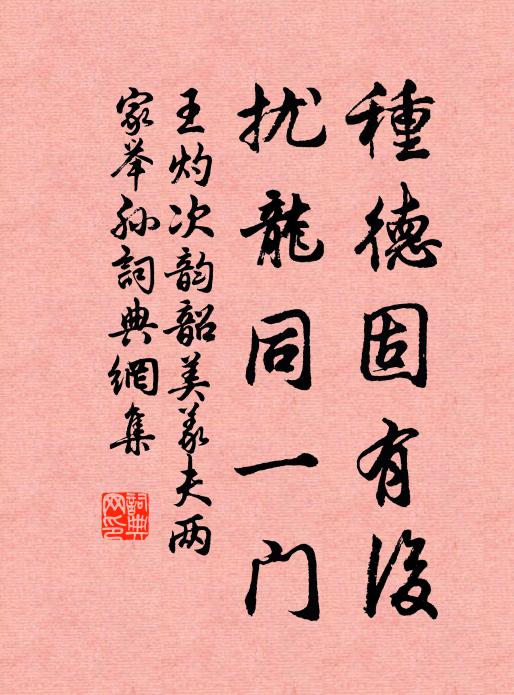 種德固有後
扰龍同一门
王灼次韵韶美羕夫两
家举孙詞典網集
詞典
网印